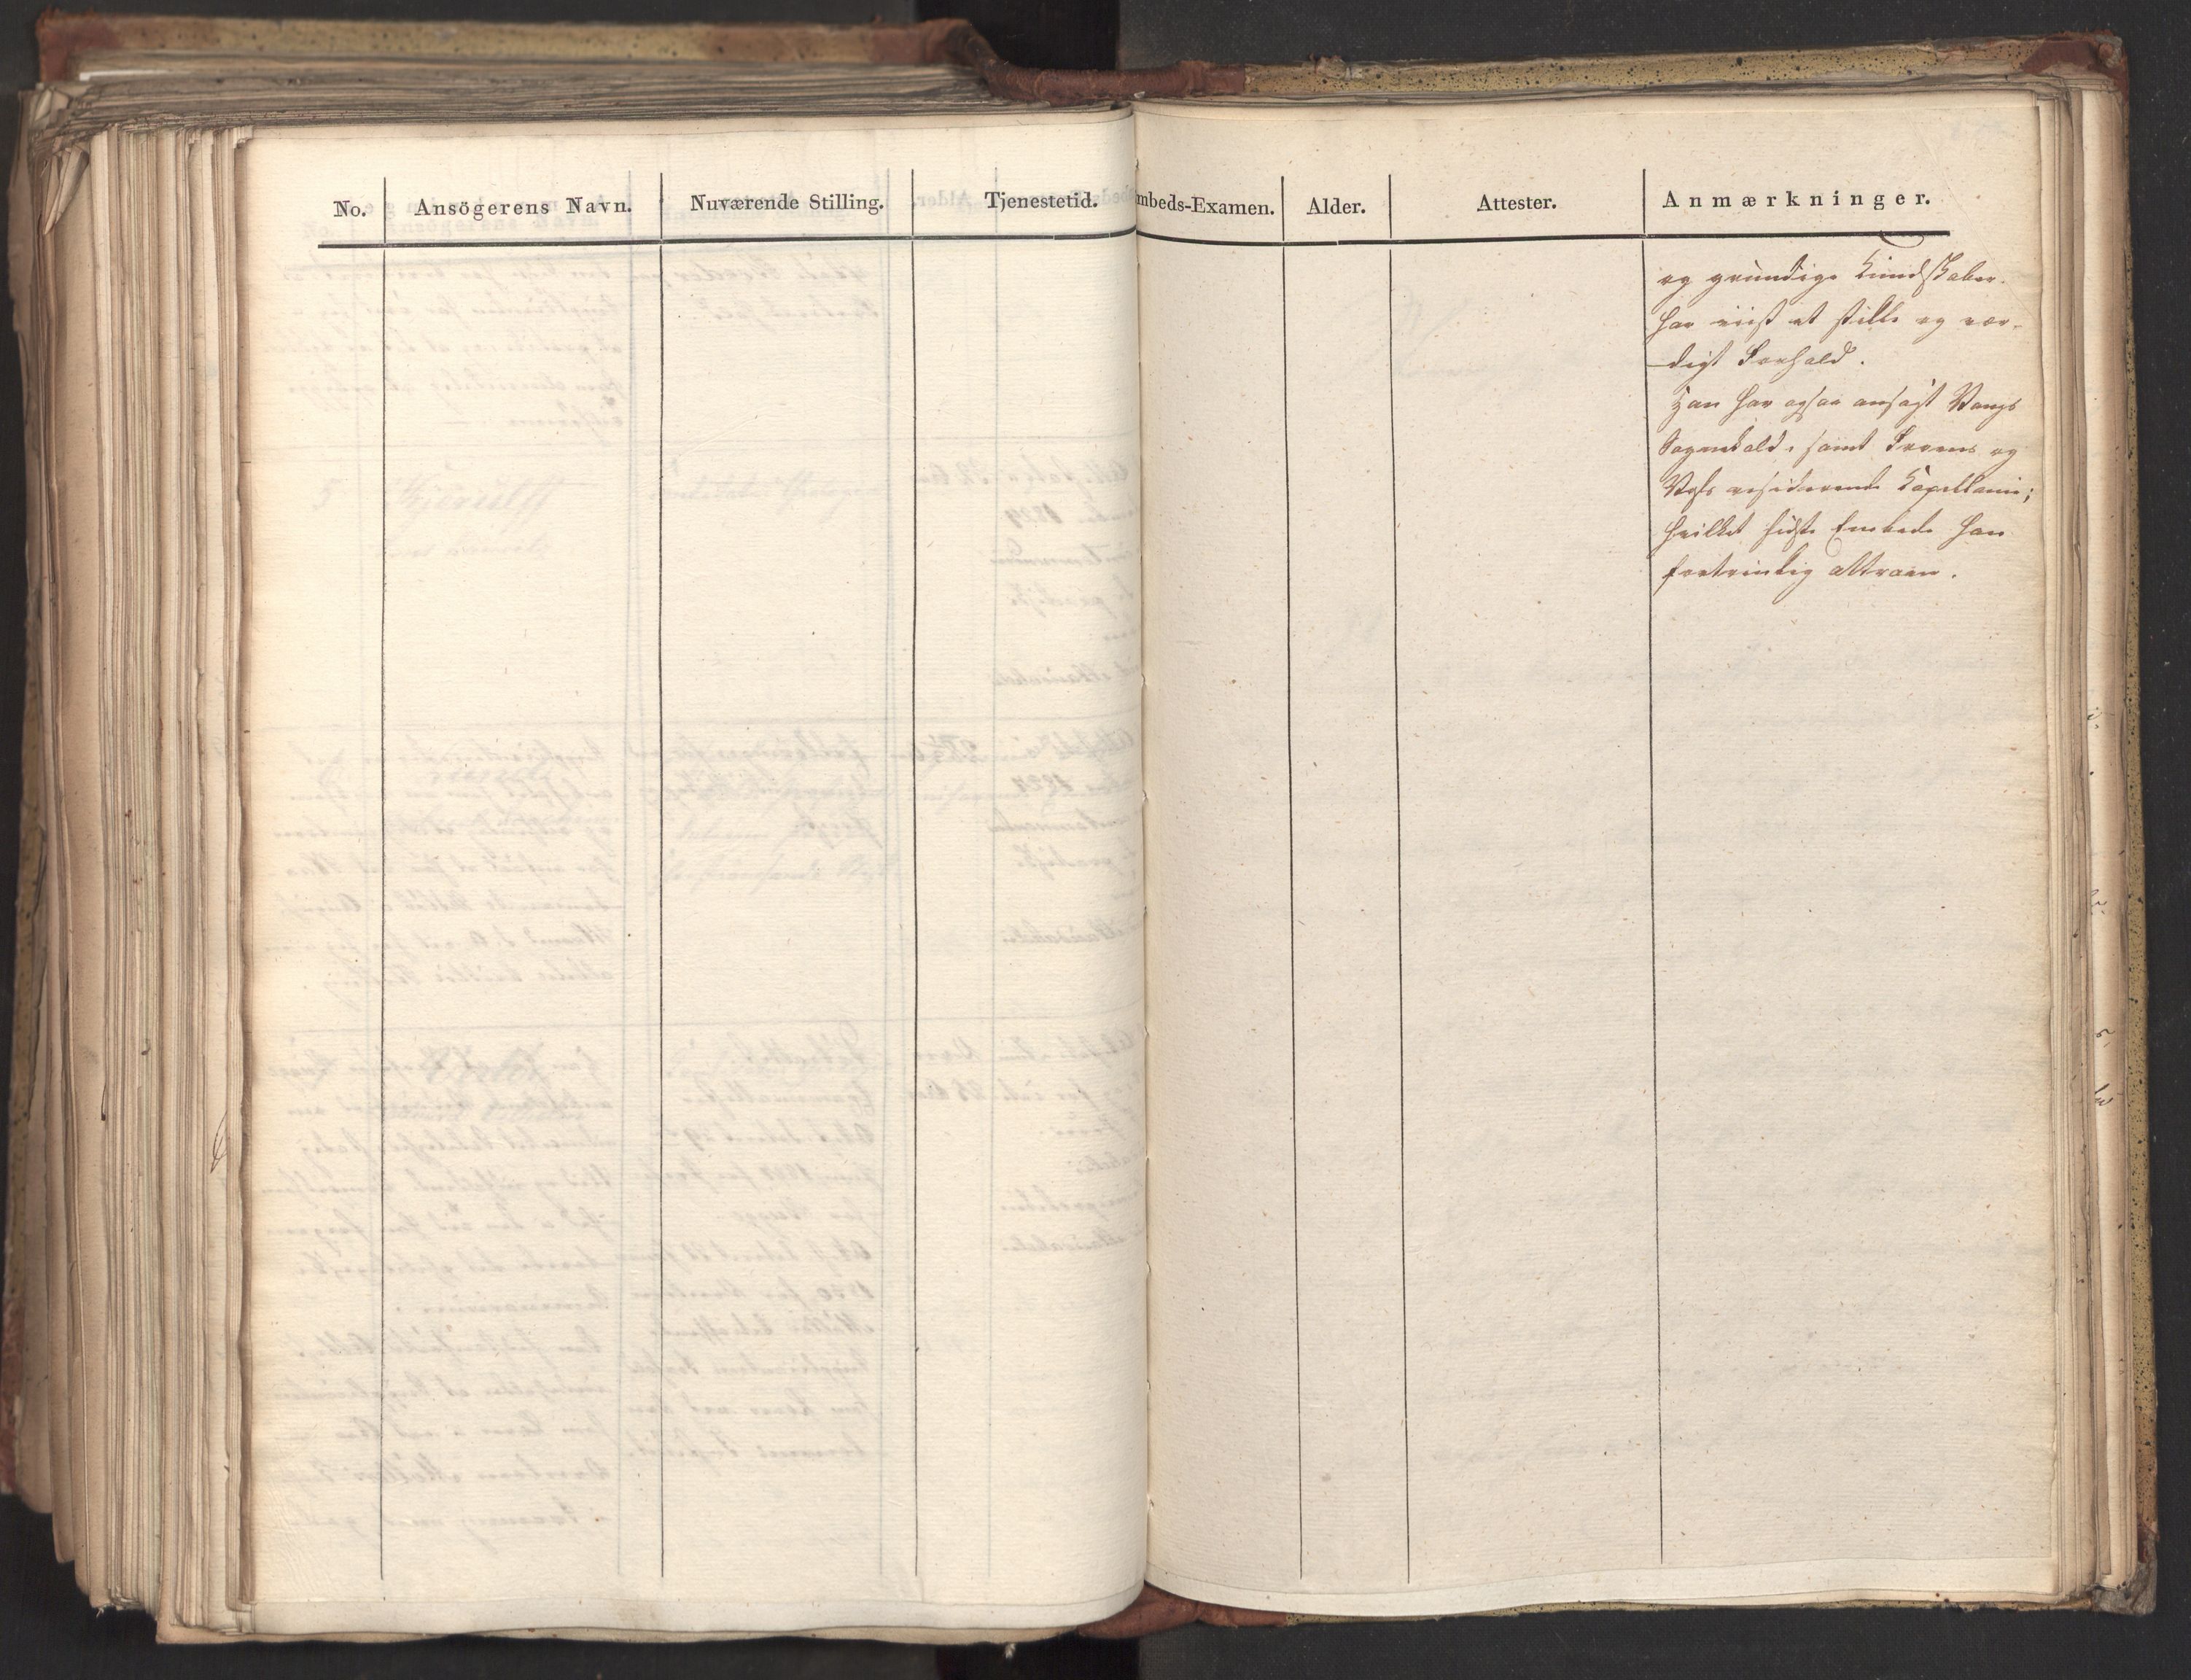 No. Ansögerens Navn. Nuværende Stilling. Tjenestetid. mbeds-Examen. Alder. Attester. Anmærkninger.
og grundige Kundskaber.
har viist et stille og vær-
digt Forhold.
Han har ogsaa ansøgt Vangs
Sognekald, samt og
residerende Kapellanie;
hvilket sidste Embede han
fortrinlig attraaer.